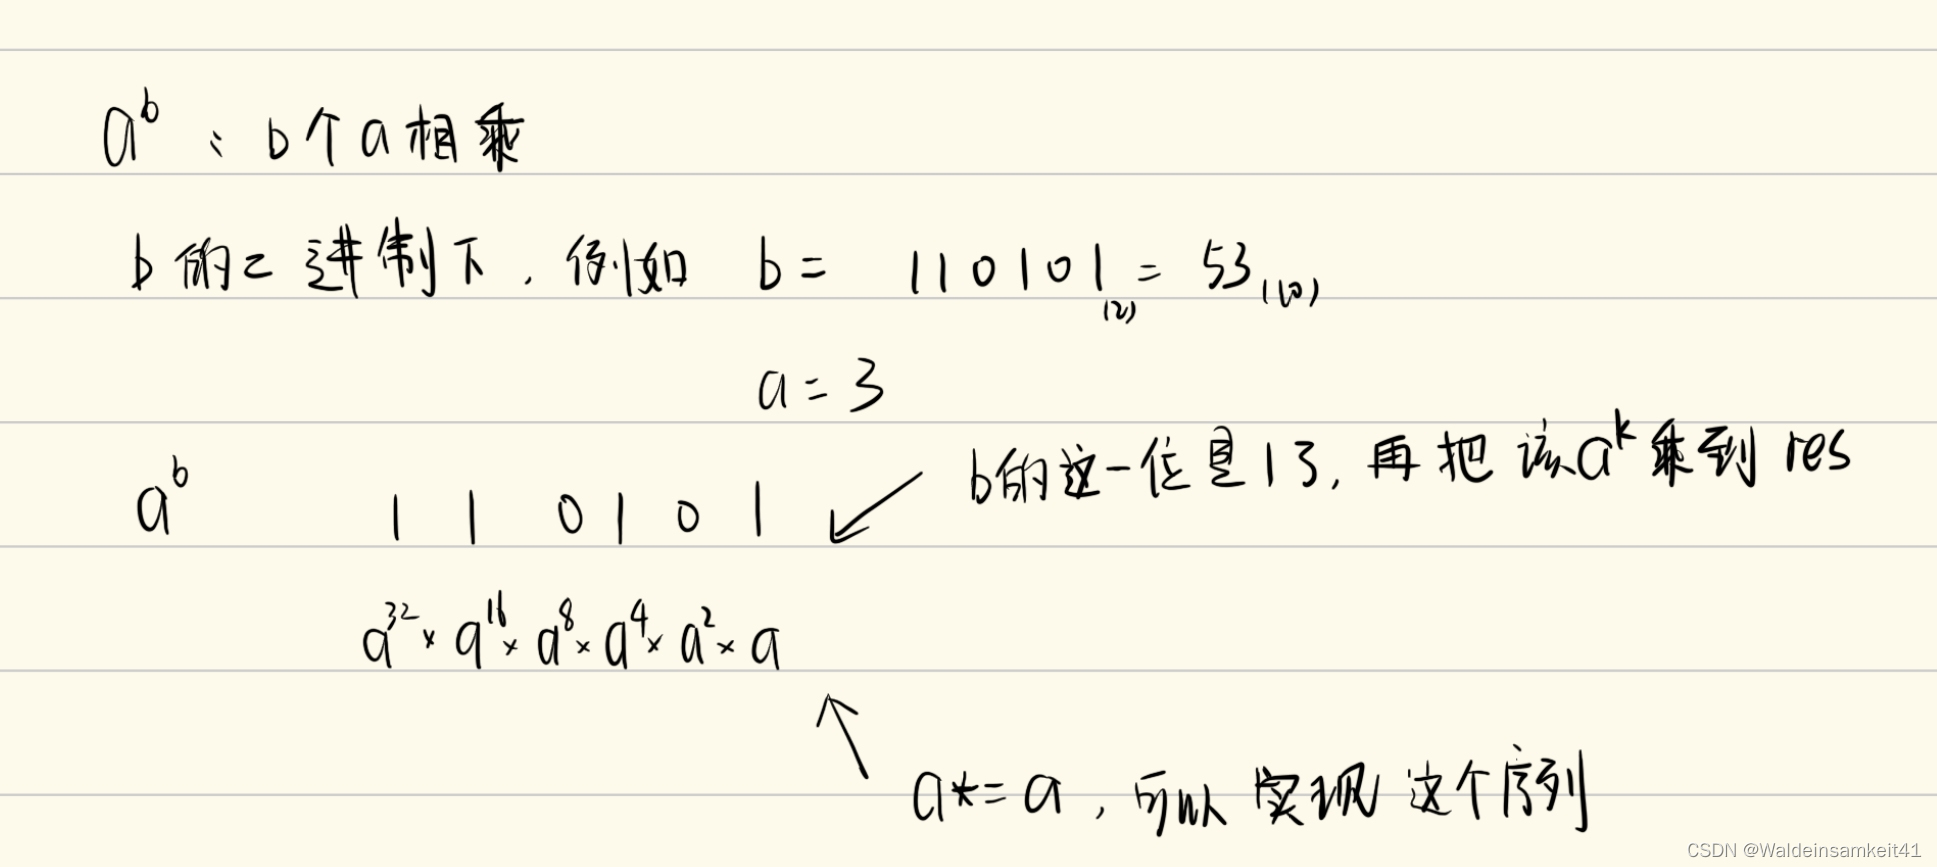 a^b : b个a相乘
b的二进制下,例如 b = 110101₍₂₎ = 53₍₁₀₎
a = 3
b的这一位是1了,再把该a^k乘到res
a^b 1 1 0 1 0 1
a^32 × a^16 × a^8 × a^4 × a^2 × a
a*=a,可以实现这个序列
CSDN @Waldeinsamkeit41